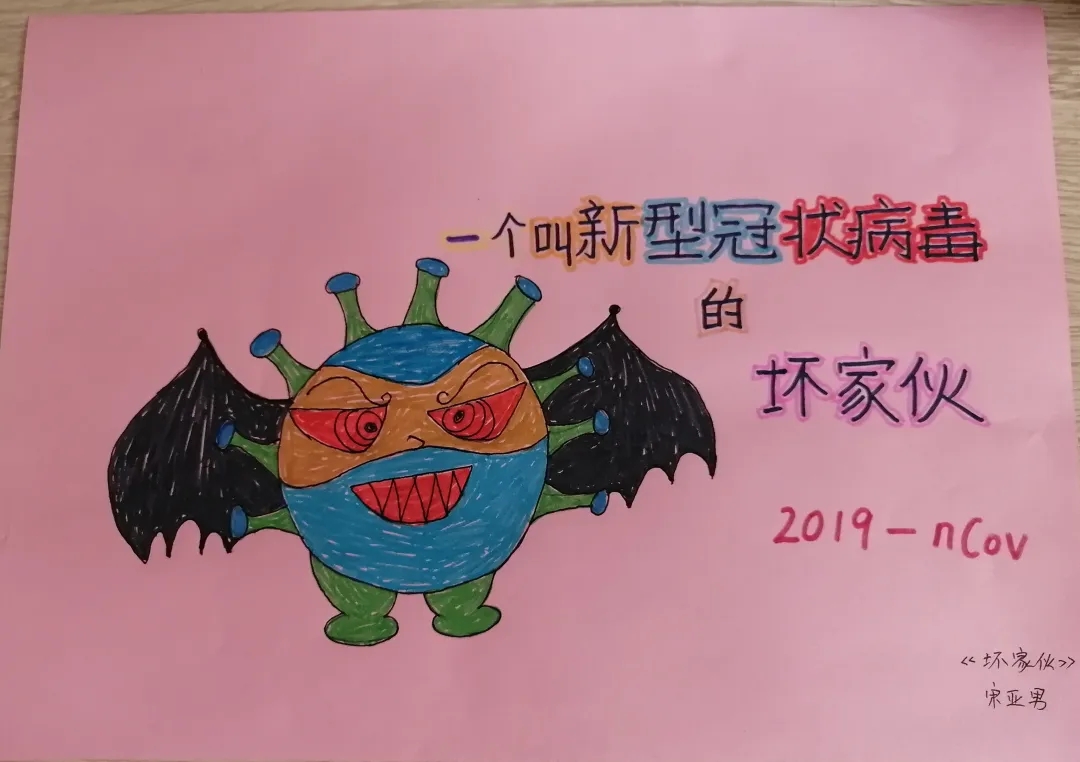 一个叫新型冠状病毒
的
坏家伙
2019-nCov
《坏家伙》
宋亚男